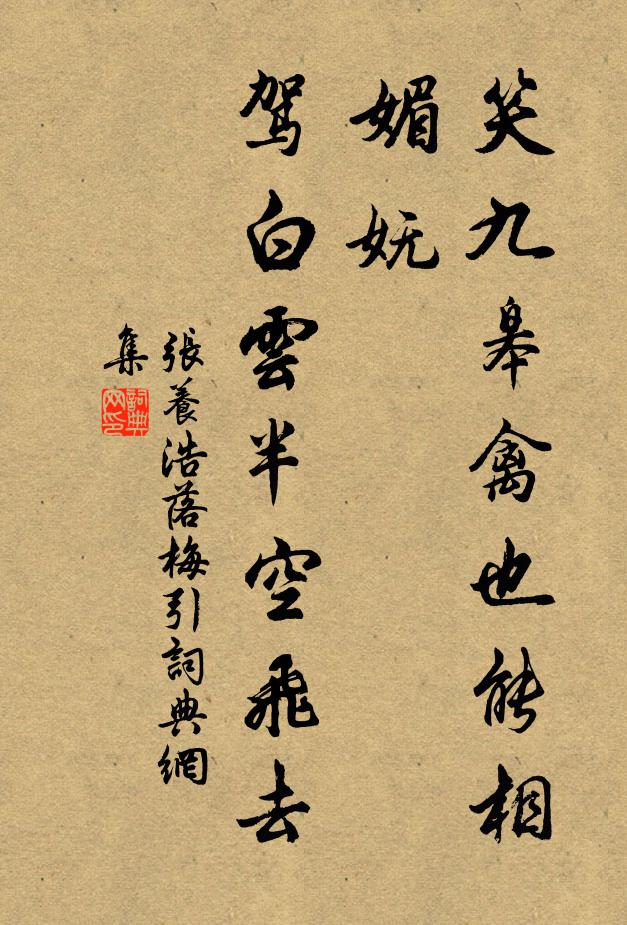 笑九皋禽也能相
媚妩
驾白雲半空飛去
張養浩落梅引詞典網
集
詞典网印